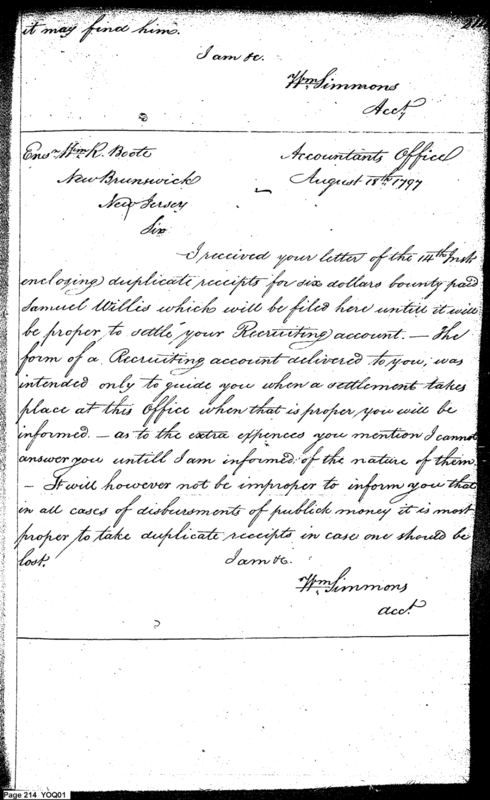 it may find him.
214
I am &c.
Wm Simmons
Acct
Ensn Wm R. Boote
Accountants Office
New Brunswick
August 18th 1797
New Jersey
Sir
I received your letter of the 14th Inst
enclosing duplicate receipts for six dollars bounty paid
Samuel Willis which will be filed here untill it will
be proper to settle your Recruiting account. — The
form of a Recruiting account delivered to you, was
intended only to guide you when a settlement takes
place at this Office when that is proper you will be
informed. — as to the extra expences you mention I cannot
answer you untill I am informed of the nature of them.
— It will however not be improper to inform you that
in all cases of disbursments of publick money it is most
proper to take duplicate receipts in case one should be
lost. I am &c.
Wm Simmons
acct
Page 214 YOQ01